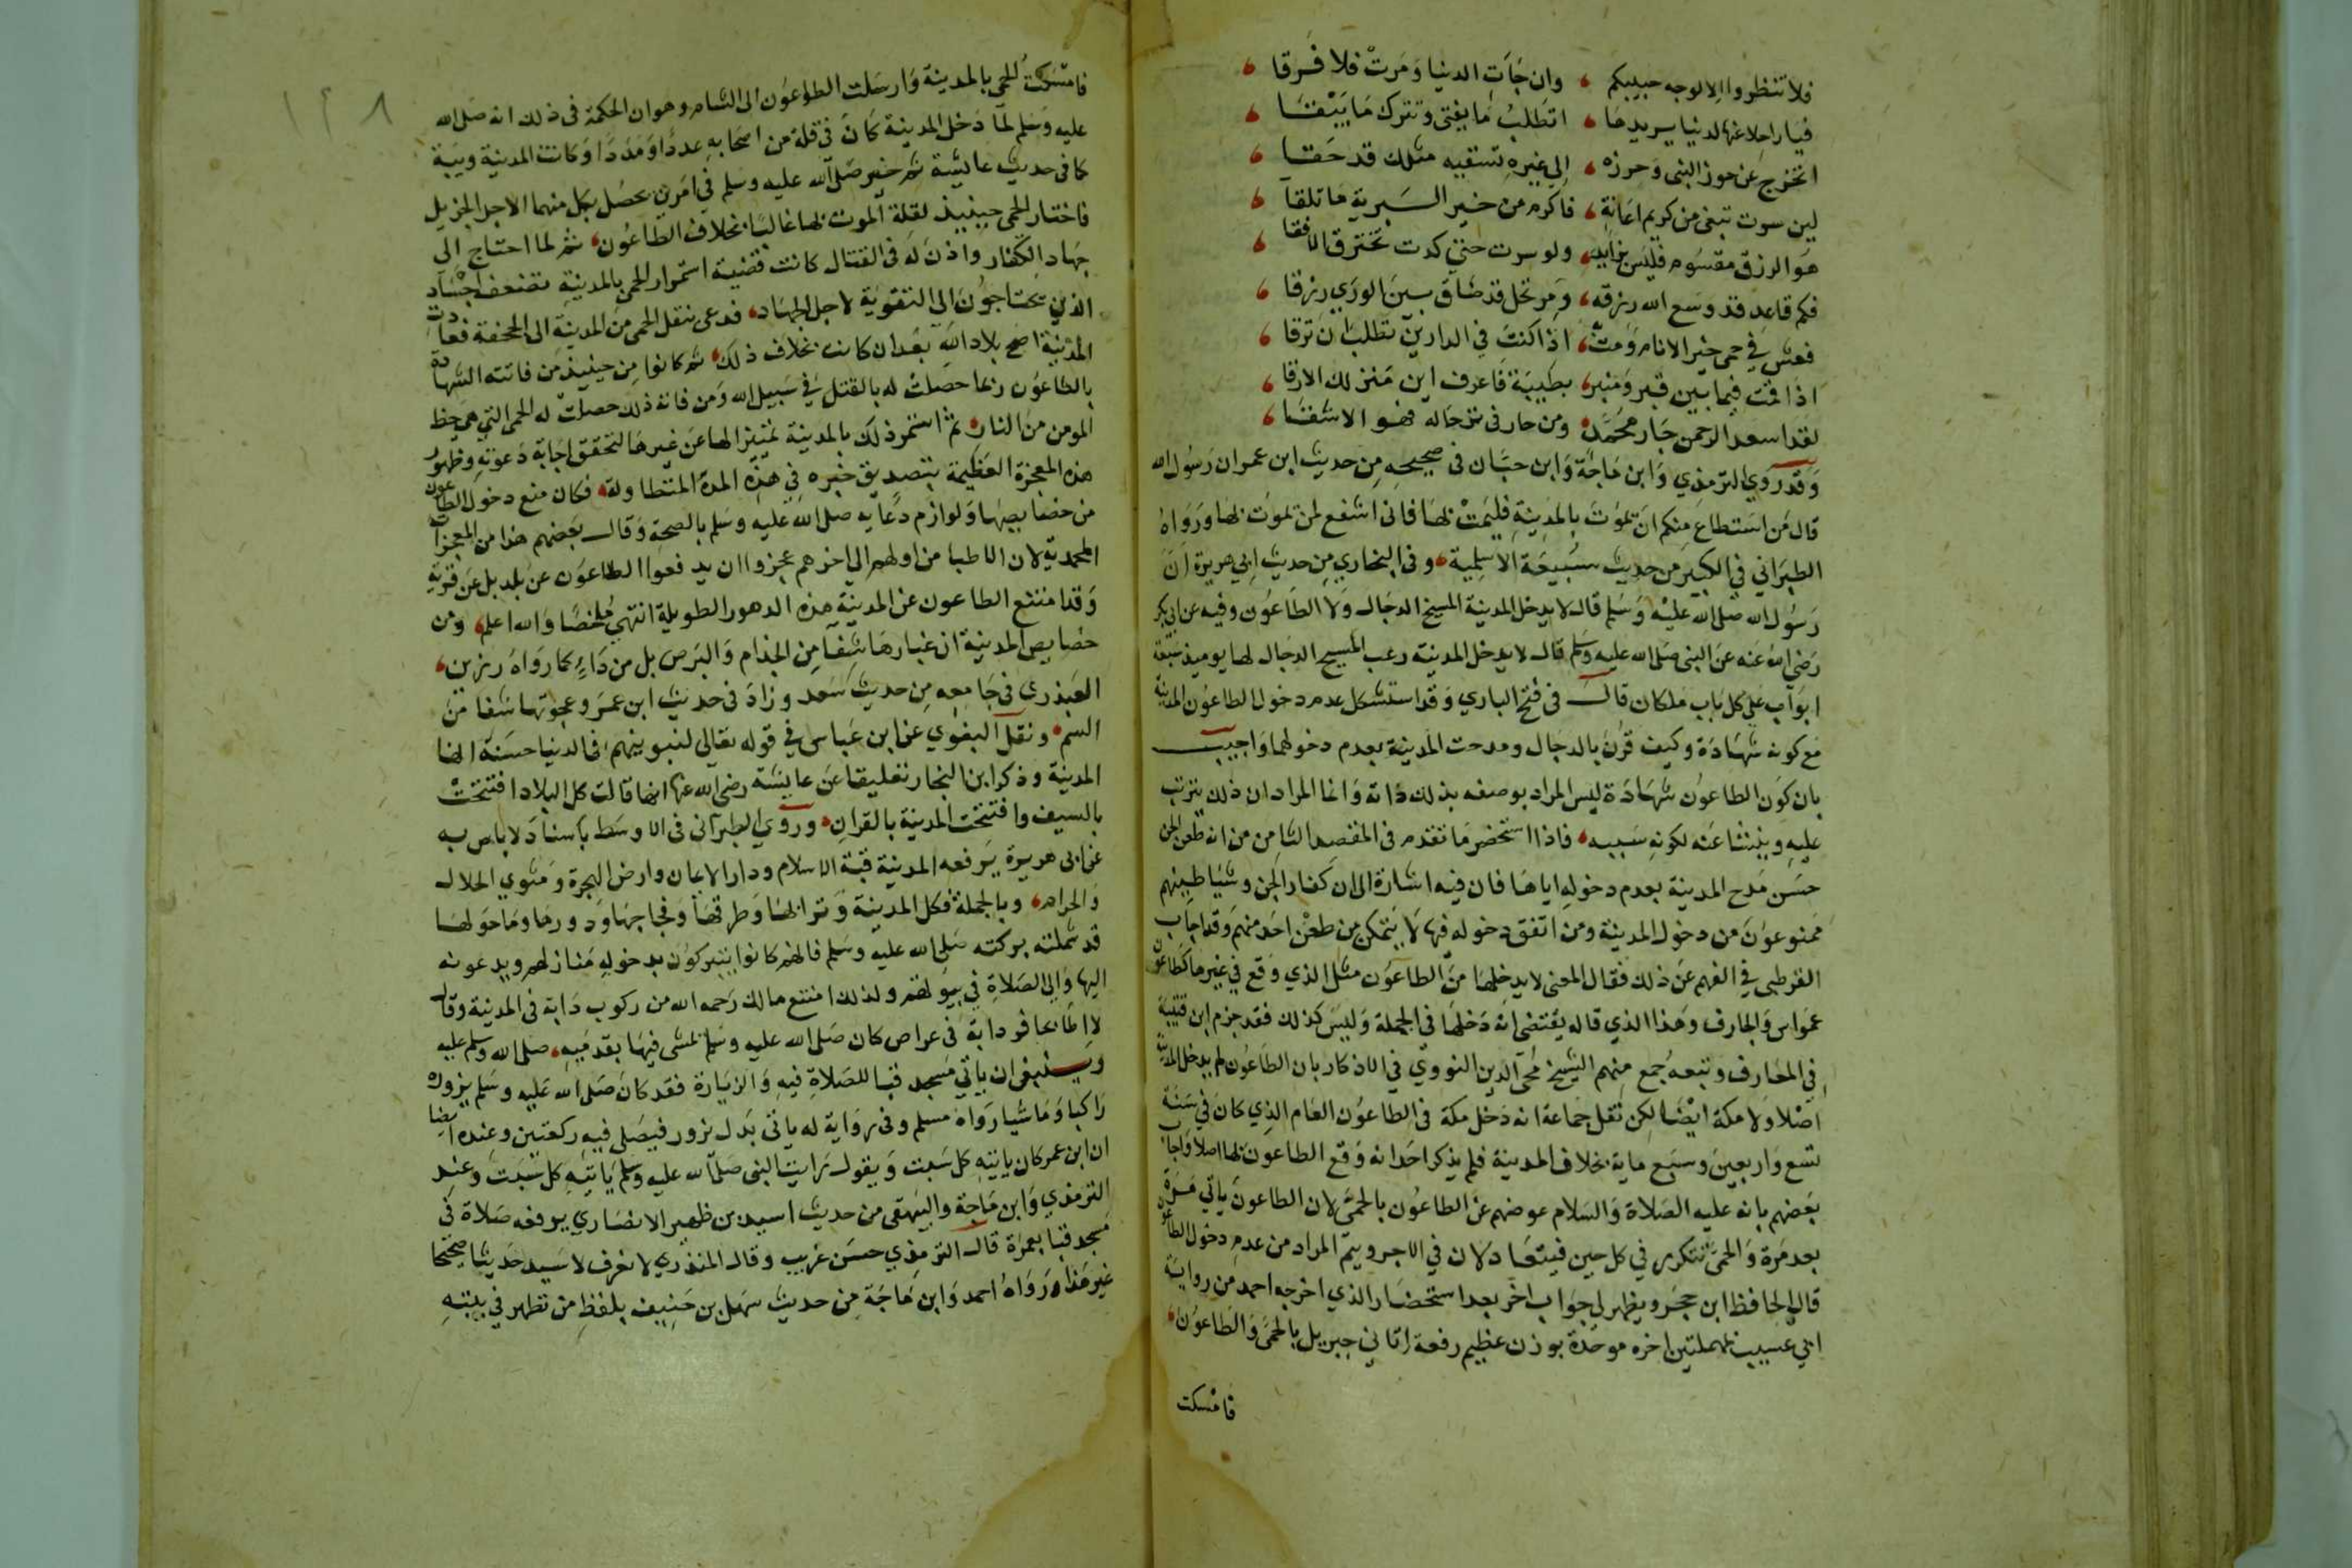 فلا تنظروا الا لوجه حبيبكم ، وان جَات الدنيا وَمَرتْ فلا فَرقا ،
فيا راحلا عنها لدنيا يريدها ، اتَطلبُ مَا يفنى وتترك مَا يَبْقَا ،
اتخرج عَن حوز النبى وَحرزه ، الى غيرهِ تستقيه مثلك قد حَقا ،
لين سرت تبغى من كريم اعَانةٍ ، فاكرم من خير البَرية مَا تلقا ،
هَو الرزق مقسُوم فليس بزايد ، ولو سرت حتى كدت تخترق الافقا ،
فكم قاعد قد وسَع الله رزقه ، وَمرتحل قد ضَاق بين الورَي رزقا ،
فعش في حمى خير الانام وَمتْ به ، اذا كنتَ في الدارين تطلبُ ان ترقا ،
اذا قمت فيما بين قبر وَمنبر ، بطيبَة فاعرف اين مَنزلك الارقا ،
لقد اسعد الرحمن جَار محَمَّد ، ومن جار فى ترحاله فهو الاشقَا ،
وَقد رَوي الترمذي وَابن مَاجَة وَابن حبَّان فى صحيحهِ مِن حديث ابن عمر ان رَسُول الله
قال مَن استطاعَ مِنكم انَ يموُتَ بالمدِينةِ فليَمتْ بها فانى اشفع لمن يموُت بها وَرَواهُ
الطبرَاني في الكبيَر من حديث سُبيعَة الاسلمِية ، وفى البخاري مِن حديث ابي هريرة انَ
رَسُول الله صَلى الله عليْه وَسَلم قال لا يدخل المدينة المسيخ الدجَال وَلا الطاعوُن وفيه عن ابي بكر
رَضي اللهُ عنه عَن النبى صَلى الله عليه وسَلم قال لا يدخل المدينة رعب المسيح الدجَال لها يوميذ سَبْعَة
ابوَاب عَلى كل بَاب مَلكان قال فى فتح الباري وَقد استشكل عدم دخول الطاعوُن المدينة
مَع كونه شهَادَة وكيف قُرنَ بالدجَال ومدحت المدينة بعدم دخولهما وَاجيب
بان كوَن الطاعوُن شهَادَة ليس المراد بوصفه بذلك ذاته وَانما المراد ان ذلك يترتب
عليهِ وينشا عَنه لكونهِ سَببه ، فاذا استحضر مَا تقدم فى المقصد الثامن من انه طعن الجن
حسَن مَدح المدينة بعدم دخولهِ اياهَا فان فيه اشارة الى ان كفار الجن وشيَاطينهم
ممنوعوُنَ من دخول المدينة ومن اتفق دخوله فيها لَا يَتمكن من طعْن احَد منهم وَقد اجَاب
القرطبى في المفهم عَن ذلك فقال المعنى لا يدخلها مِن الطاعوُن مثل الذي وَقع في غيرهَا كطاعون
عمَواس وَالجارف وهَذا الذي قاله يقتضى انه دَخلها فى الجملة وَليسَ كذلك فقد جزم ابن قتيبة
فِي المعَارف وتبعهُ جمع منِهم الشيخ محي الدين النووي في الاذكار بان الطاعوُن لم يدخل المدينة
اصْلا وَلا مكة ايضًا لكِن نقل جماعة انه دَخل مكة فى الطاعوُن العَام الذي كانَ في سَنة
تسع واربعينَ وسبَع ماية بخلاف المدينة فلم يذكر احَد انه وَقع الطاعونَ بها اصلا وَاجاب
بَعضهم بانه عليه الصَلاة وَالسَلام عوضهم عَن الطاعوُن بالحمَى لان الطاعونَ يَاتي مَرة
بعد مَرة وَالحمَى تتكرر في كل حين فيتعَادلان في الاجر ويتم المراد من عدم دخول الطاعون
قال الحافظ ابن حجَر ويظهر لي جوَاب اخر بعد استحضَار الذي اخرجه احمد من روايَة
ابي عَسيب بمهملتين اخره موحَدة بوزن عظيم رفعه اتاني جبريل بالحمَى وَالطاعوُن ،
فامْسكت
١٢٨
فامْسَكتُ الحمى بالمدينة وَارسَلت الطاعوُن الى الشام وهو ان الحكمة فى ذلك انه صَلى الله
عليه وَسَلم لمَا دَخل المدينة كانَ في قلة من اصحَابهِ عددًا وَمَددًا وَكانت المدينة وبيَة
كما فى حديث عايشة ثم خير صَلى الله عليه وسَلم في امَرين يحصُل بكل منهما الاجر الجزيل
فاختار الحمى حينيذ لقلة الموت بها غالبًا بخلاف الطاعوُن ، ثم لما احتاج الى
جهاد الكفار واذنَ له فى القتال كانت قضية استمرار الحمى بالمدينة تضعف اجسَاد
الذين يحتاجوُن الى التقوَية لاجل الجهاد ، فدعى بنقل الحمى من المدينة الى الجحفة فعادت
المدينة اصح بلاد الله بَعد ان كانت بخلاف ذلك ، ثم كانوا مِن حينيذ مَن فاتته الشهادة
بالطاعوُن ربما حصَلتْ له بالقتل في سَبيل الله وَمن فاته ذلك حصلت له الحمى التي هي حظ
المومن من النار ، ثم استمر ذلك بالمدينة تمييزًا لها عَن غيرهَا لتحقق اجَابة دَعوَتهِ وظهور
هذه المعجزة العَظيمة بتصديق خبره في هذه المدة المتطاولة ، فكان منع دخول الطاعون
من خصَايصهَا وَلوازم دعَايه صلى الله عليه وَسَلم بالصحة وَقال بَعضهم هذا من المعجزات
المحمدية لان الاطبا من اولهم الي اخرهم عجزوا ان يدفعوا الطاعوُن عن بَلد بل عَن قريةٍ
وَقد امتنع الطاعون عن المدينةِ هذه الدهور الطويلة انتهي مُلخصًا وَالله اعلم ، ومن
خصَايص المدينة ان غبارهَا شفا مِن الجذام وَالبرَص بل من كل دَاءٍ كما رَوَاهُ رزين ،
العَبدري فى جَامعه مِن حديث سَعد وزادَ فى حديث ابن عمَر وعجوَتها شفا مِن
السم ، ونقل البغوي عن ابن عَباس في قوله تعَالي لنبوينهم في الدنيا حسَنة انها
المدينة وذكر ابن النجار تعليقا عَن عايشة رضى الله عنها انها قالت كل البلاد افتتحتْ
بالسيف وافتتحت المدينة بالقران ، وروَي الطبرَانى فى الاوسَط باسنادَ لا باس به
عن ابى هريرة يَرفعه المدينة قبَة الاسلام ودار الايمان وارض الهجرة وَمثوي الحلال
وَالحرام ، وبالجملة فكل المدينة وَترابها وَطرقهَا وَفجاجهَا وَدورهَا ومَا حَولهَا
قد شملته بركته صَلى الله عليه وسَلم فانهم كانوا يتبركوُن بدخولهِ مَنازلهم ويدعونه
اليها وَالى الصَلاةِ في بيوتهم ولذلك امتنع مالك رَحمه الله من ركوب دَابة فى المدينة وَقال
لا اطَأ بحافر دابة فى عراص كان صَلى الله عليه وسَلم يمشى فيهَا بقدمَيهِ ، صلى الله وسلم عليه
وينبغى ان ياتي مَسجد قبَا للصَلاةِ فيهِ وَالزيَارة فقد كانَ صَلى الله عَليه وسَلم يزوره
رَاكبا وَمَاشيا رَوَاهُ مسلم وفى رِوَاية له ياتى بَدل يزور فيصَلى فيهِ ركعتين وعنده ايضا
ان ابن عمر كان ياتيهِ كل سَبت وَيقول رَايت النبى صَلى الله عليه وسَلم يَاتيهِ كل سَبت وعند
الترمذي وَابن مَاجة وَالبيهقى من حديث اسيد بن ظهير الانصَاري يرفعه صَلاة في
مسجد قبَا بعمرَة قال الترمذي حسَن غريب وقال المنذري لا نعرف لاسَيد حَديثا صحيحا
غير هَذا ، وَرَوَاهُ احمد وَابن مَاجَة من حديث سَهل بن حنيف بلفظِ من تطهر في بيتهِ